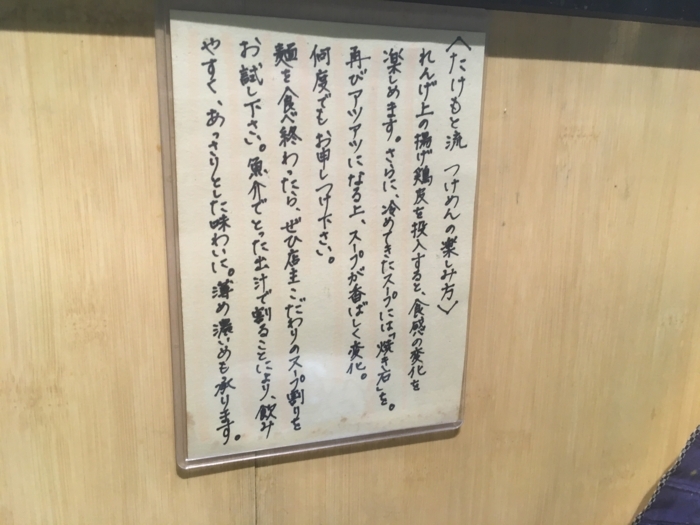 〈たけもと流 つけめんの楽しみ方〉
れんげ上の揚げ鶏皮を投入すると、食感の変化を
楽しめます。さらに、冷めてきたスープには「焼き石」を。
再びアツアツになる上、スープが香ばしく変化。
何度でもお申しつけ下さい。
麺を食べ終わったら、ぜひ店主こだわりのスープ割りを
お試し下さい。魚介でとった出汁で割ることにより、飲み
やすく、あっさりとした味わいに。薄め濃いめも承ります。